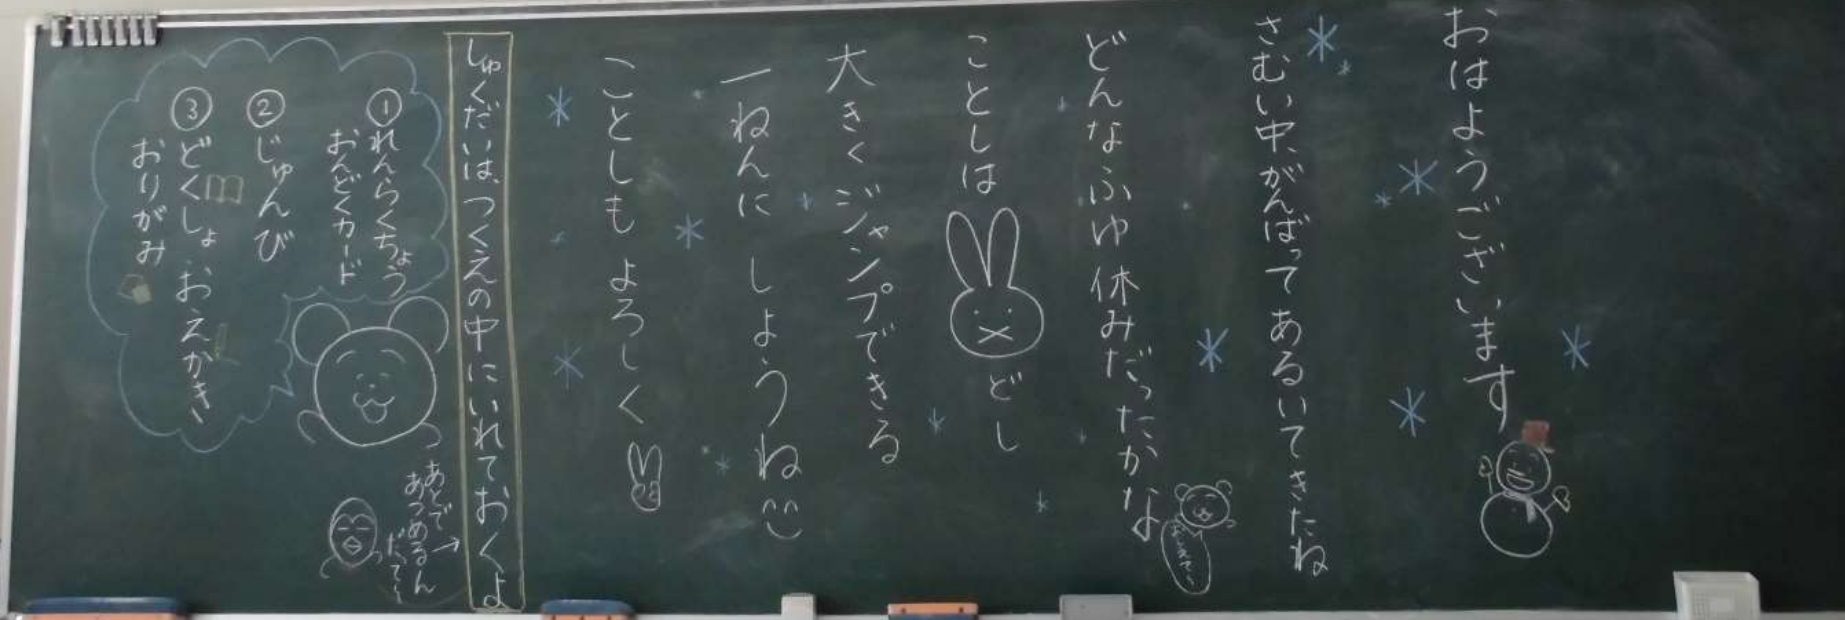 おはようございます
さむい中、がんばって あるいてきたね
どんなふゆ休みだったかな
おしえて〜
ことしは
どし
大きく ジャンプできる
一ねんに しようね
ことしも よろしく
しゅくだいは、つくえの中にいれておくよ
あとで
あつめるん
だって〜
①れんらくちょう
おんどくカード
②じゅんび
③どくしょ、おえかき、
おりがみ